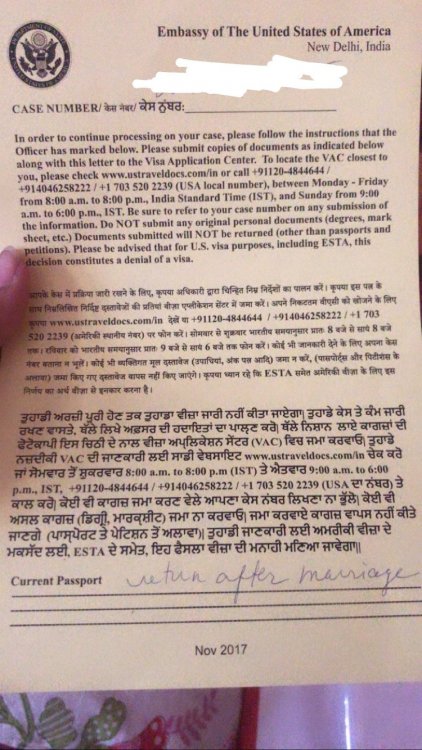 Embassy of The United States of America
New Delhi, India
CASE NUMBER/ केस नंबर/ ਕੇਸ ਨੰਬਰ:
In order to continue processing on your case, please follow the instructions that the
Officer has marked below. Please submit copies of documents as indicated below
along with this letter to the Visa Application Center. To locate the VAC closest to
you, please check www.ustraveldocs.com/in or call +91120-4844644 /
+914046258222 / +1 703 520 2239 (USA local number), between Monday - Friday
from 8:00 a.m. to 8:00 p.m., India Standard Time (IST), and Sunday from 9:00
a.m. to 6:00 p.m., IST. Be sure to refer to your case number on any submission of
the information. Do NOT submit any original personal documents (degrees, mark
sheet, etc.) Documents submitted will NOT be returned (other than passports and
petitions). Please be advised that for U.S. visa purposes, including ESTA, this
decision constitutes a denial of a visa.
आपके केस में प्रक्रिया जारी रखने के लिए, कृपया अधिकारी द्वारा चिन्हित निम्न निर्देशों का पालन करें। कृपया इस पत्र के
साथ निम्नलिखित निर्दिष्ट दस्तावेजों की प्रतियां वीज़ा एप्लीकेशन सेंटर में जमा करें। अपने निकटतम वीएसी को खोजने के लिए
कृपया www.ustraveldocs.com/in देखें या +91120-4844644 / +914046258222 / +1 703
520 2239 (अमेरिकी स्थानीय नंबर) पर फोन करें। सोमवार से शुक्रवार भारतीय समयानुसार प्रातः 8 बजे से सायं 8 बजे
तक। रविवार को भारतीय समयानुसार प्रातः 9 बजे से सायं 6 बजे तक फोन करें। कोई भी जानकारी देने के लिए अपना केस
नंबर बताना न भूलें। कोई भी व्यक्तिगत मूल दस्तावेज (उपाधियां, अंक पत्र आदि) जमा न करें, (पासपोर्ट्स और पिटीशंस के
अलावा) जमा किए गए दस्तावेज़ वापस नहीं किए जाएंगे। कृपया ध्यान रहे कि ESTA समेत अमरीकी वीज़ा के लिए इस
निर्णय का अर्थ वीज़ा से इनकार करना है।
ਤੁਹਾਡੀ ਅਰਜ਼ੀ ਪੂਰੀ ਹੋਣ ਤਕ ਤੁਹਾਡਾ ਵੀਜ਼ਾ ਜਾਰੀ ਨਹੀਂ ਕੀਤਾ ਜਾਏਗਾ| ਤੁਹਾਡੇ ਕੇਸ ਤੇ ਕੰਮ ਜਾਰੀ
ਰਖਣ ਵਾਸਤੇ, ਥੱਲੇ ਲਿਖੇ ਅਫ਼ਸਰ ਦੀ ਹਦਾਇਤਾਂ ਦਾ ਪਾਲ੍ਣ ਕਰੋ| ਥੱਲੇ ਨਿਸ਼ਾਨ ਲਾਏ ਕਾਗਜ਼ਾਂ ਦੀ
ਫੋਟੋਕਾਪੀ ਇਸ ਚਿਠੀ ਦੇ ਨਾਲ ਵੀਜ਼ਾ ਅਪ੍ਲਿਕੇਸ਼ਨ ਸੇਂਟਰ (VAC) ਵਿਚ ਜਮਾ ਕਰਵਾਓ| ਤੁਹਾਡੇ
ਨਜ਼ਦੀਕੀ VAC ਦੀ ਜਾਣਕਾਰੀ ਲਈ ਸਾਡੀ ਵੇਬਸਾਇਟ www.ustraveldocs.com/in ਚੇਕ ਕਰੋ
ਜਾਂ ਸੋਮਵਾਰ ਤੋਂ ਸ਼ੁਕਰਵਾਰ 8:00 a.m. to 8:00 p.m (IST) ਤੇ ਐਤਵਾਰ 9:00 a.m. to 6:00
p.m., IST, +91120-4844644 / +914046258222 / +1 703 520 2239 (USA ਦਾ ਨੰਬਰ) ਤੇ
ਕਾਲ ਕਰੋ| ਕੋਈ ਵੀ ਕਾਗਜ਼ ਜਮਾ ਕਰਣ ਵੇਲੇ ਆਪਣਾ ਕੇਸ ਨੰਬਰ ਲਿਖਣਾ ਨਾ ਭੁੱਲੋ| ਕੋਈ ਵੀ
ਅਸਲ ਕਾਗਜ਼ (ਡਿਗ੍ਰੀ, ਮਾਰਕ੍ਸ਼ੀਟ) ਜਮਾ ਨਾ ਕਰਵਾਓ| ਜਮਾ ਕਰਵਾਏ ਕਾਗਜ਼ ਵਾਪਸ ਨਹੀਂ ਕੀਤੇ
ਜਾਣਗੇ (ਪਾਸ੍ਪੋਰਟ ਤੇ ਪੇਟਿਸ਼ਨ ਤੋਂ ਅਲਾਵਾ)| ਤੁਹਾਡੀ ਜਾਣਕਾਰੀ ਲਈ ਅਮਰੀਕੀ ਵੀਜ਼ਾ ਦੇ
ਮਕਸਦ ਲਈ, ESTA ਦੇ ਸਮੇਤ, ਇਹ ਫੈਸਲਾ ਵੀਜ਼ਾ ਦੀ ਮਨਾਹੀ ਮਣਿਆ ਜਾਵੇਗਾ||
Current Passport return after marriage
Nov 2017